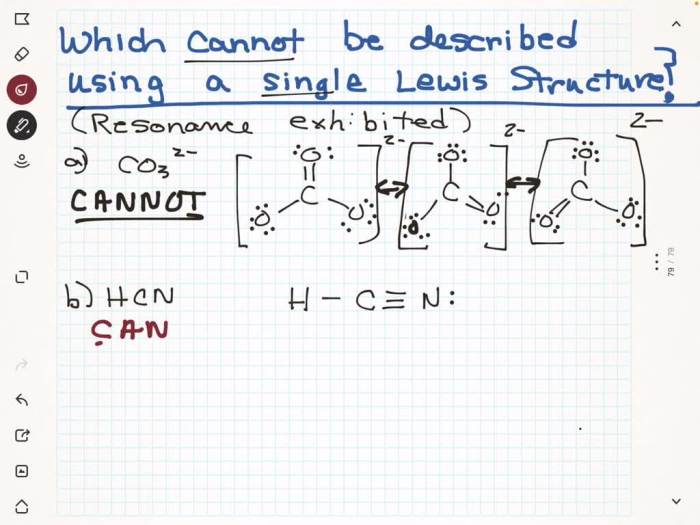 Which cannot be described
using a single Lewis Structure?
(Resonance exhibited)
a) CO3 2-
CANNOT
2- 2- 2-
O O O
C C C
O O O O O O
b) HCN
H - C ≡ N:
CAN
79 / 79